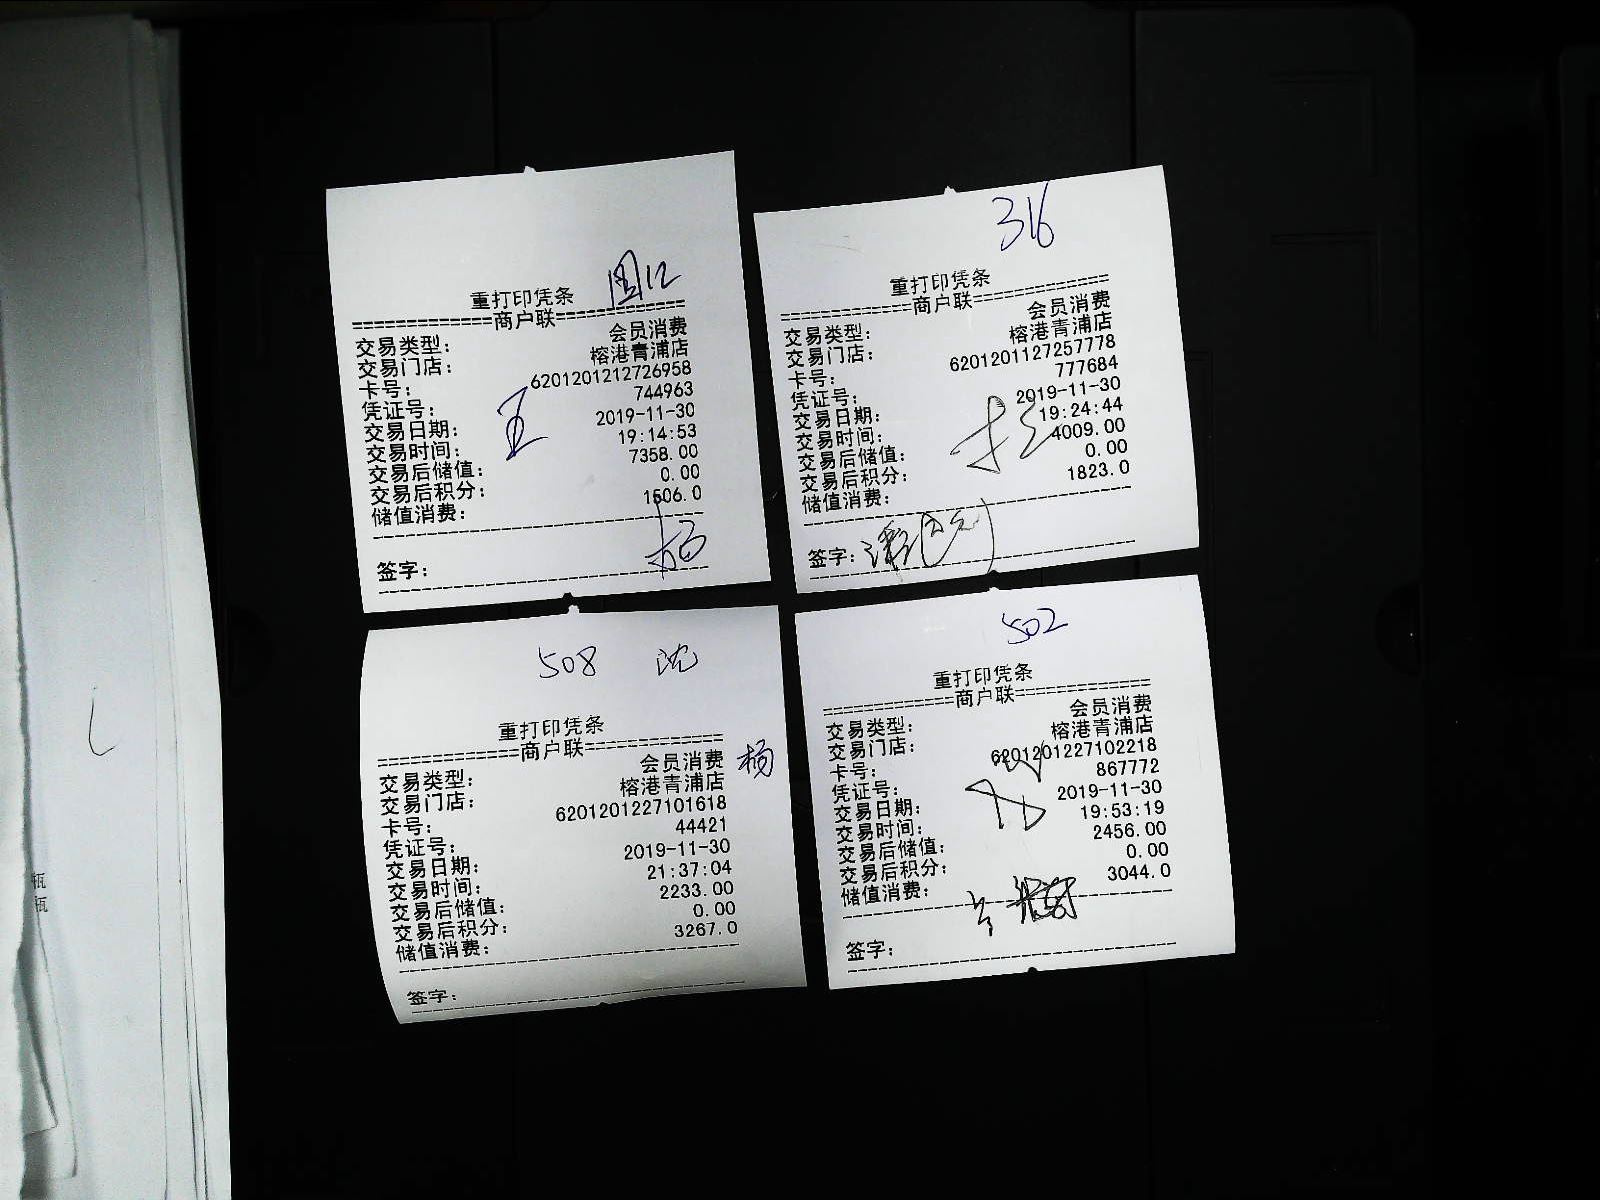 圆12
重打印凭条
=============商户联============
交易类型: 会员消费
交易门店: 榕港青浦店
卡号: 6201201212726958
凭证号: 744963
交易日期: 2019-11-30
交易时间: 19:14:53
交易后储值: 7358.00
交易后积分: 0.00
储值消费: 1506.0
王
签字: 杨
316
重打印凭条
=============商户联=============
交易类型: 会员消费
交易门店: 榕港青浦店
卡号: 6201201127257778
凭证号: 777684
交易日期: 2019-11-30
交易时间: 19:24:44
交易后储值: 4009.00
交易后积分: 0.00
储值消费: 1823.0
签字:
508 沈
重打印凭条
=============商户联=============
交易类型: 会员消费 杨
交易门店: 榕港青浦店
卡号: 6201201227101618
凭证号: 44421
交易日期: 2019-11-30
交易时间: 21:37:04
交易后储值: 2233.00
交易后积分: 0.00
储值消费: 3267.0
签字:
502
重打印凭条
=============商户联=============
交易类型: 会员消费
交易门店: 榕港青浦店
卡号: 6201201227102218
凭证号: 867772
交易日期: 2019-11-30
交易时间: 19:53:19
交易后储值: 2456.00
交易后积分: 0.00
储值消费: 3044.0
签字:
瓶
瓶